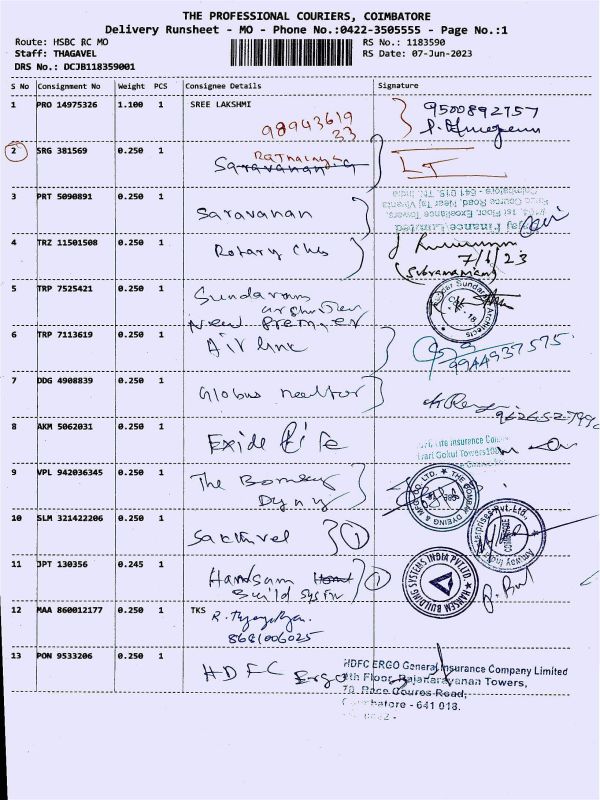 THE PROFESSIONAL COURIERS, COIMBATORE
Delivery Runsheet - MO - Phone No.:0422-3505555 - Page No.:1
Route: HSBC RC MO RS No.: 1183590
Staff: THAGAVEL RS Date: 07-Jun-2023
DRS No.: DCJB118359001
S No Consignment No Weight PCS Consignee Details Signature
1 PRO 14975326 1.100 1 SREE LAKSHMI 9500892757
9894361933
2 SRG 381569 0.250 1
Saravanan G
3 PRT 5090891 0.250 1 Saravanan
Bajaj Finance Limited
1st Floor, Excellance Towers,
Race Course Road, Near Taj Vivanta
Coimbatore - 641 018, TN, India
4 TRZ 11501508 0.250 1 Rotary Club
7/6/23
(Subramaniam)
5 TRP 7525421 0.250 1 Sundaram
New Premier
6 TRP 7113619 0.250 1 Air link 9944937575
7 DDG 4908839 0.250 1 Globus realtor
8 AKM 5062031 0.250 1 Exide Life
9 VPL 942036345 0.250 1 The Bombay
Dying
THE BOMBAY DYEING & MFG CO. LTD.
10 SLM 321422206 0.250 1 Sakthivel 1
COIMBATORE
11 JPT 130356 0.245 1 Handsam 1
Build System
HANSEM BUILDING SYSTEMS INDIA PVT.LTD.
12 MAA 860012177 0.250 1 TKS
8681006025
13 PON 9533206 0.250 1 HDFC Ergo
HDFC ERGO General Insurance Company Limited
Floor, Rajanarayanan Towers,
70, Race Coures Road,
Coimbatore - 641 018.